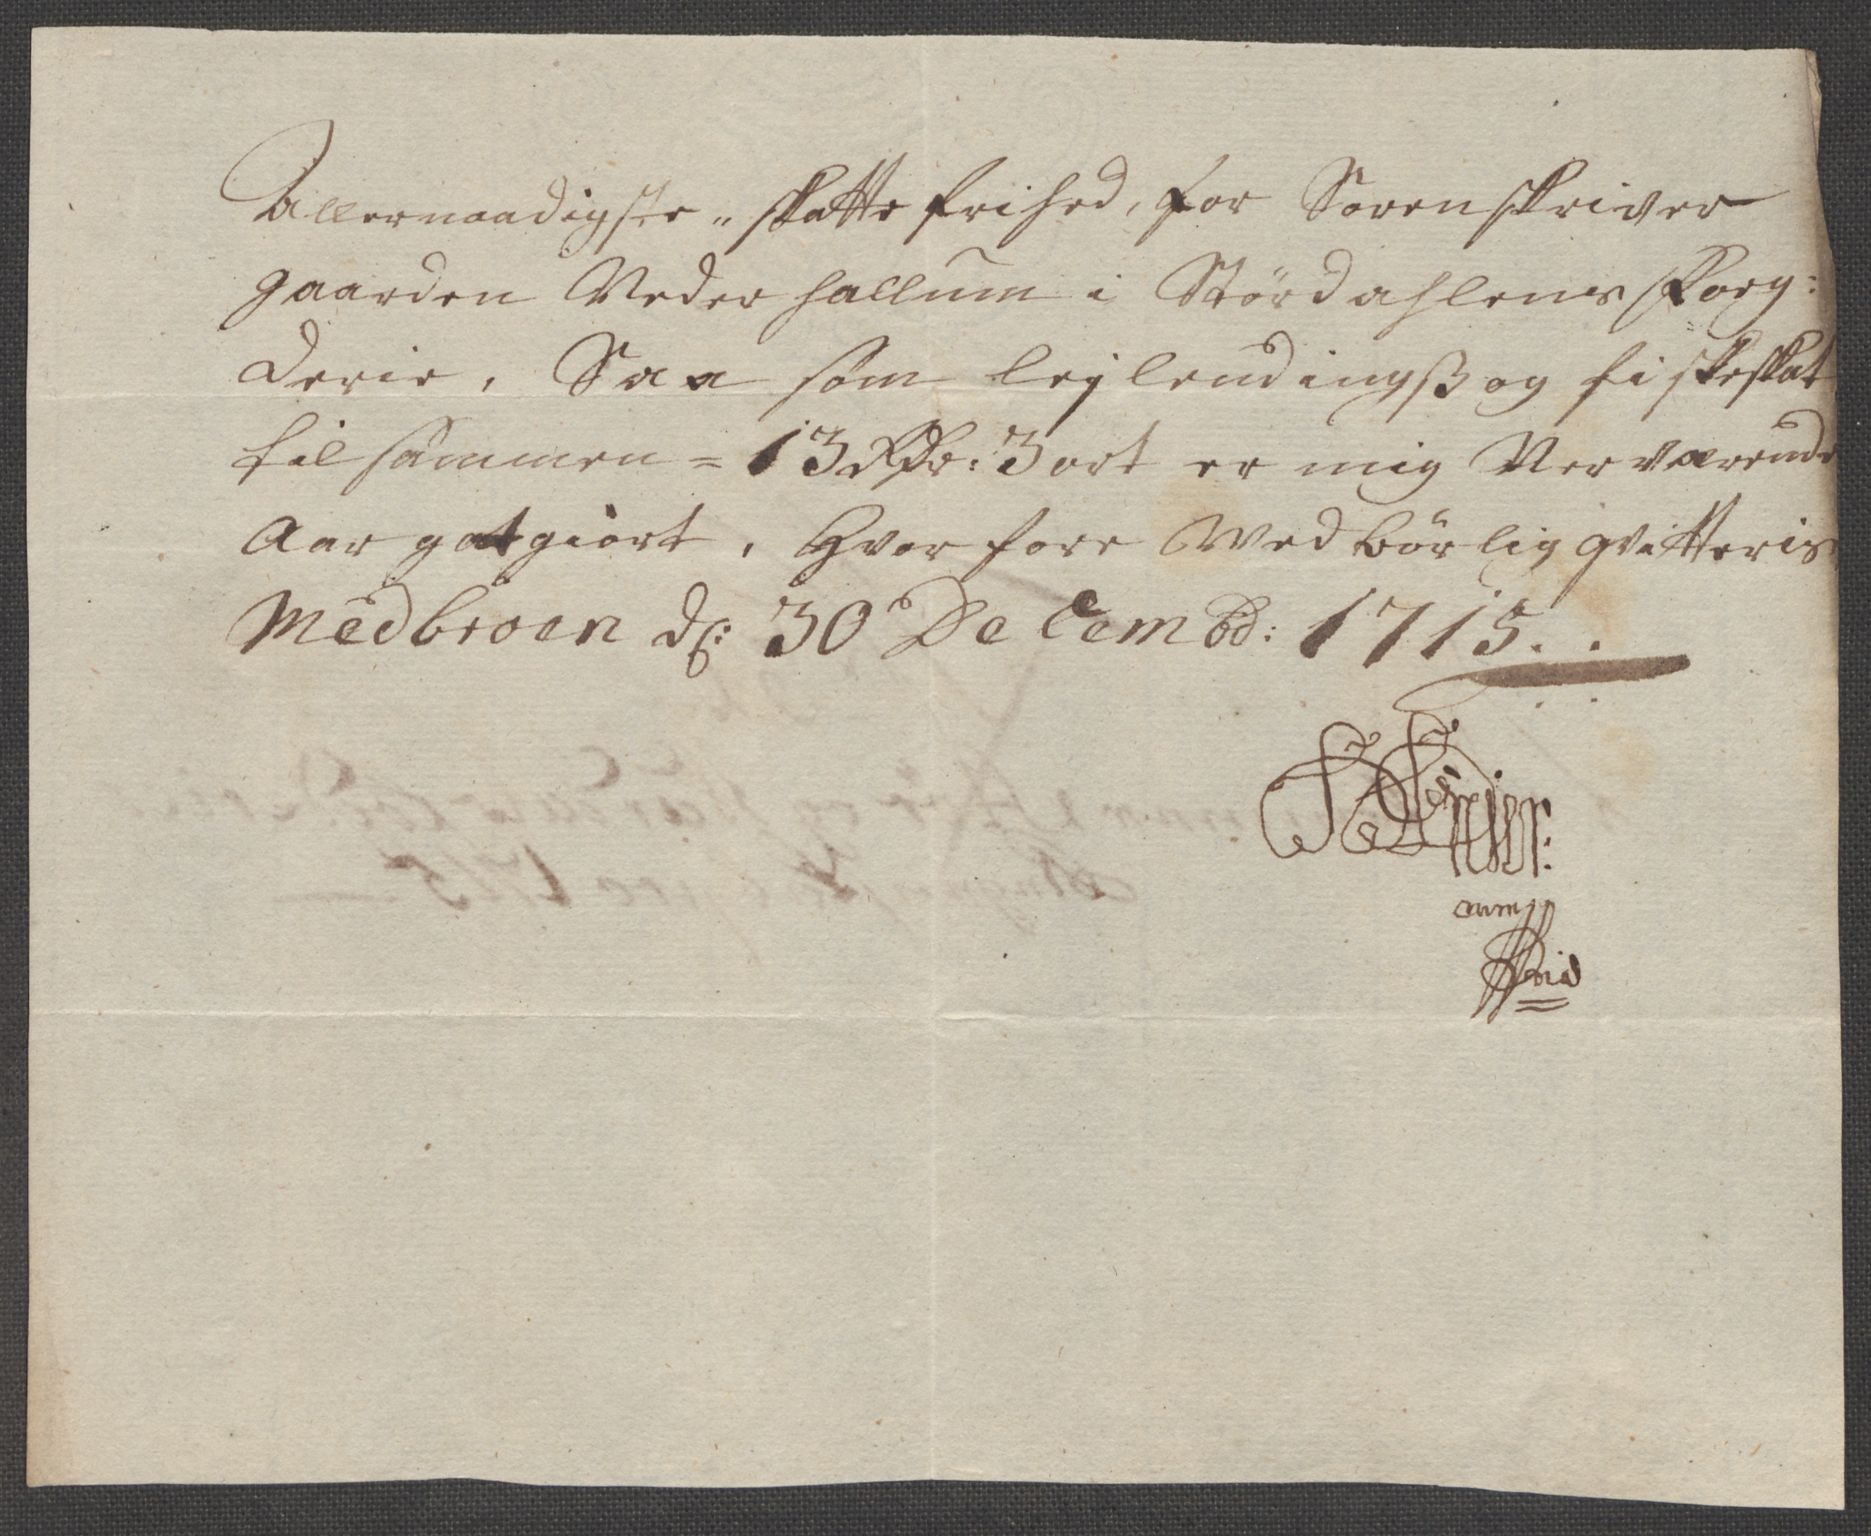 Allernaadigste " skatte frihed, for Sorenskriver
gaarden Neder hallum i Stördahlens Foeg:
derie, Saa som lejlendingsß og fiskeskat
til sammen = 13 Rdr: 3 ort er mig Nerværende
Aar gotgiort, Hvor fore Med börlig qvitteris
Medbroen d: 30 Decembd: 1715..